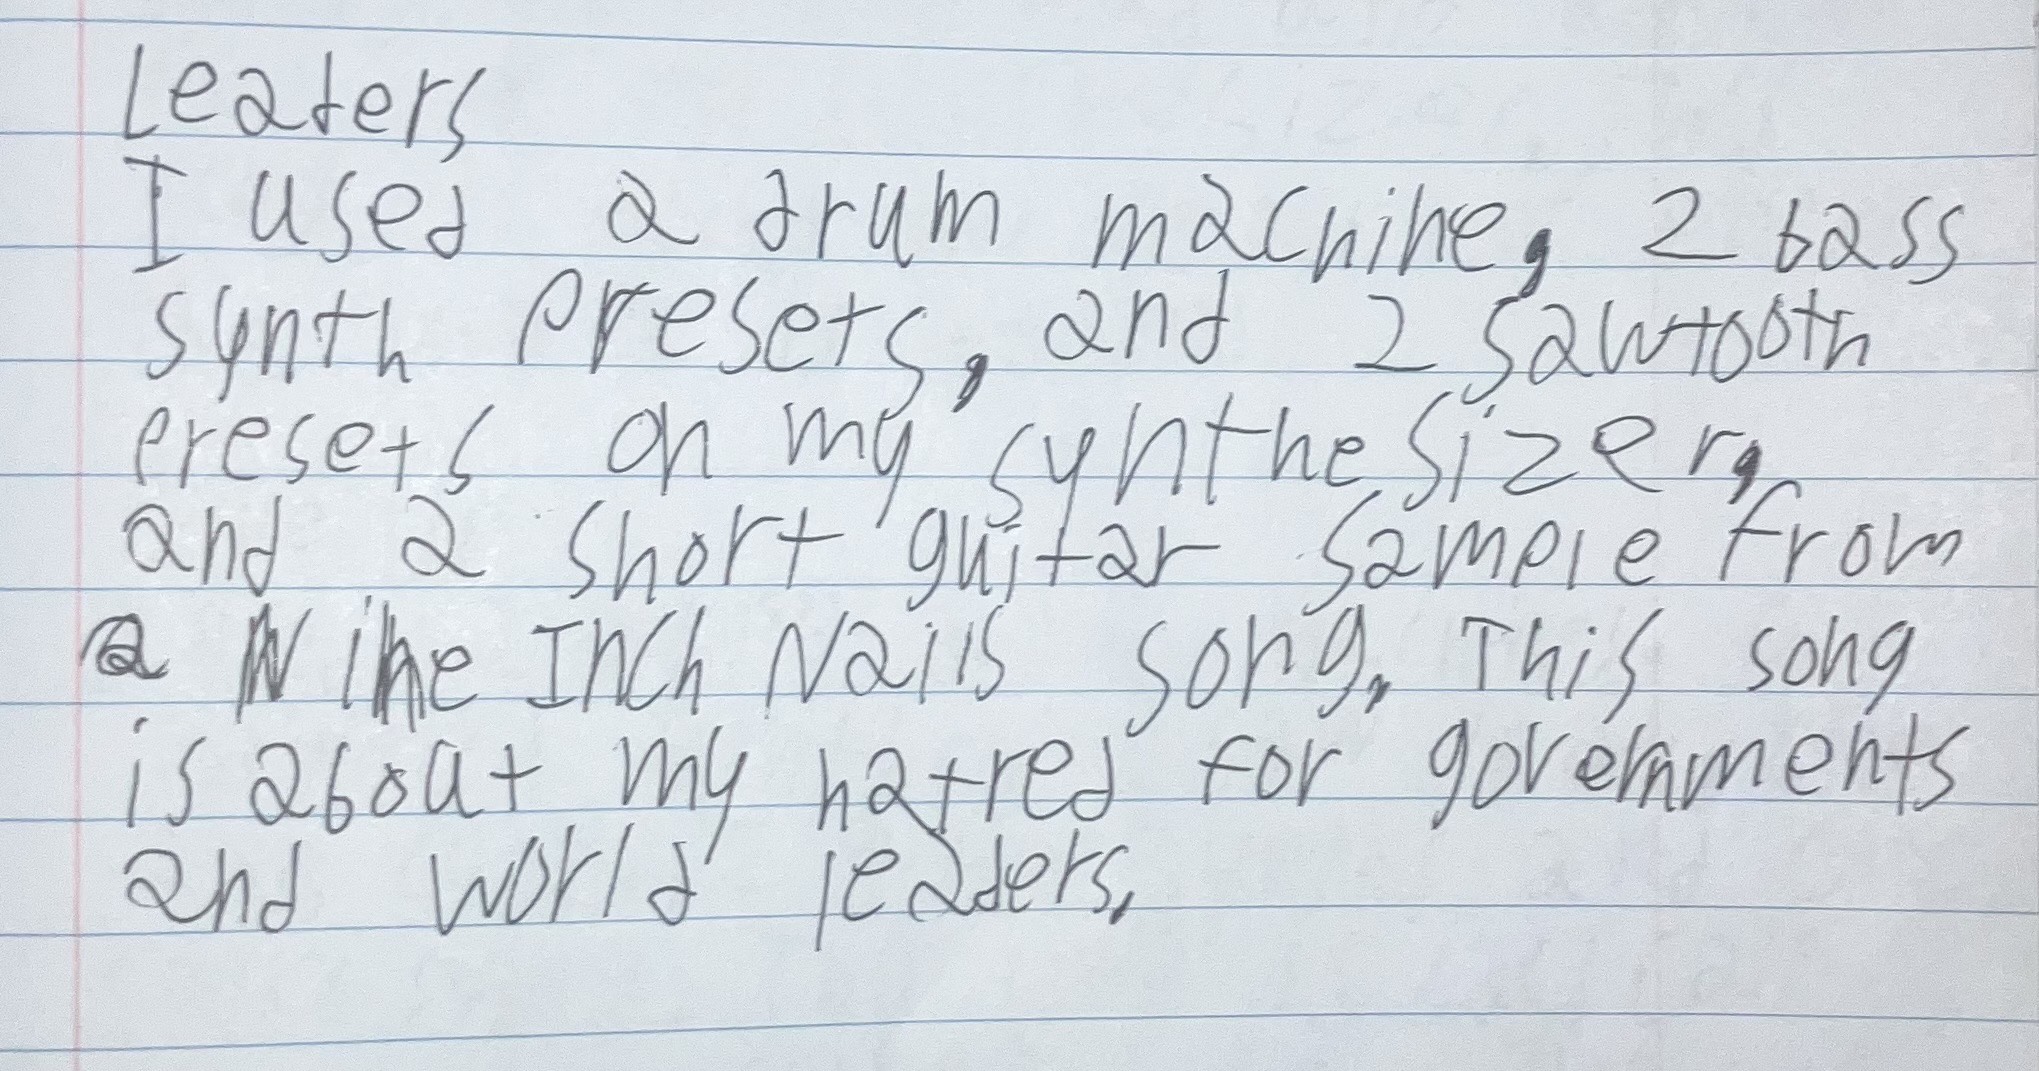 Leaders
I used a drum machine, 2 bass
synth presets, and 2 sawtooth
presets on my synthesizer,
and a short guitar sample from
a Nine Inch Nails song. This song
is about my hatred for governments
and world leaders.